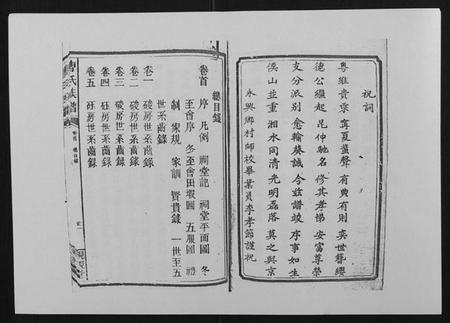 祝詞
粵維貴宗 寧夏蜚聲 有典有則 奕世簪纓
德公繼起 昆仲馳名 修其孝悌 安富尊榮
支分派別 愈輪葵誠 今茲譜竣 序事如生
侯山並重 湘水同清 光明磊落 莫之與京
永興鄉村師校畢業員李孝節謹祝
總目錄
卷首 序 凡例 祠堂記 祠堂平面圖 冬
至會序 冬至會田塅圖 五服圖 禮
制 家規 家訓 賢貴錄 一世至五
世系錄
卷一 房世系齒錄
卷二 房世系齒錄
卷三 房世系齒錄
卷四 房世系齒錄
卷五 房世系齒錄
曹氏族譜
卷首 總目錄